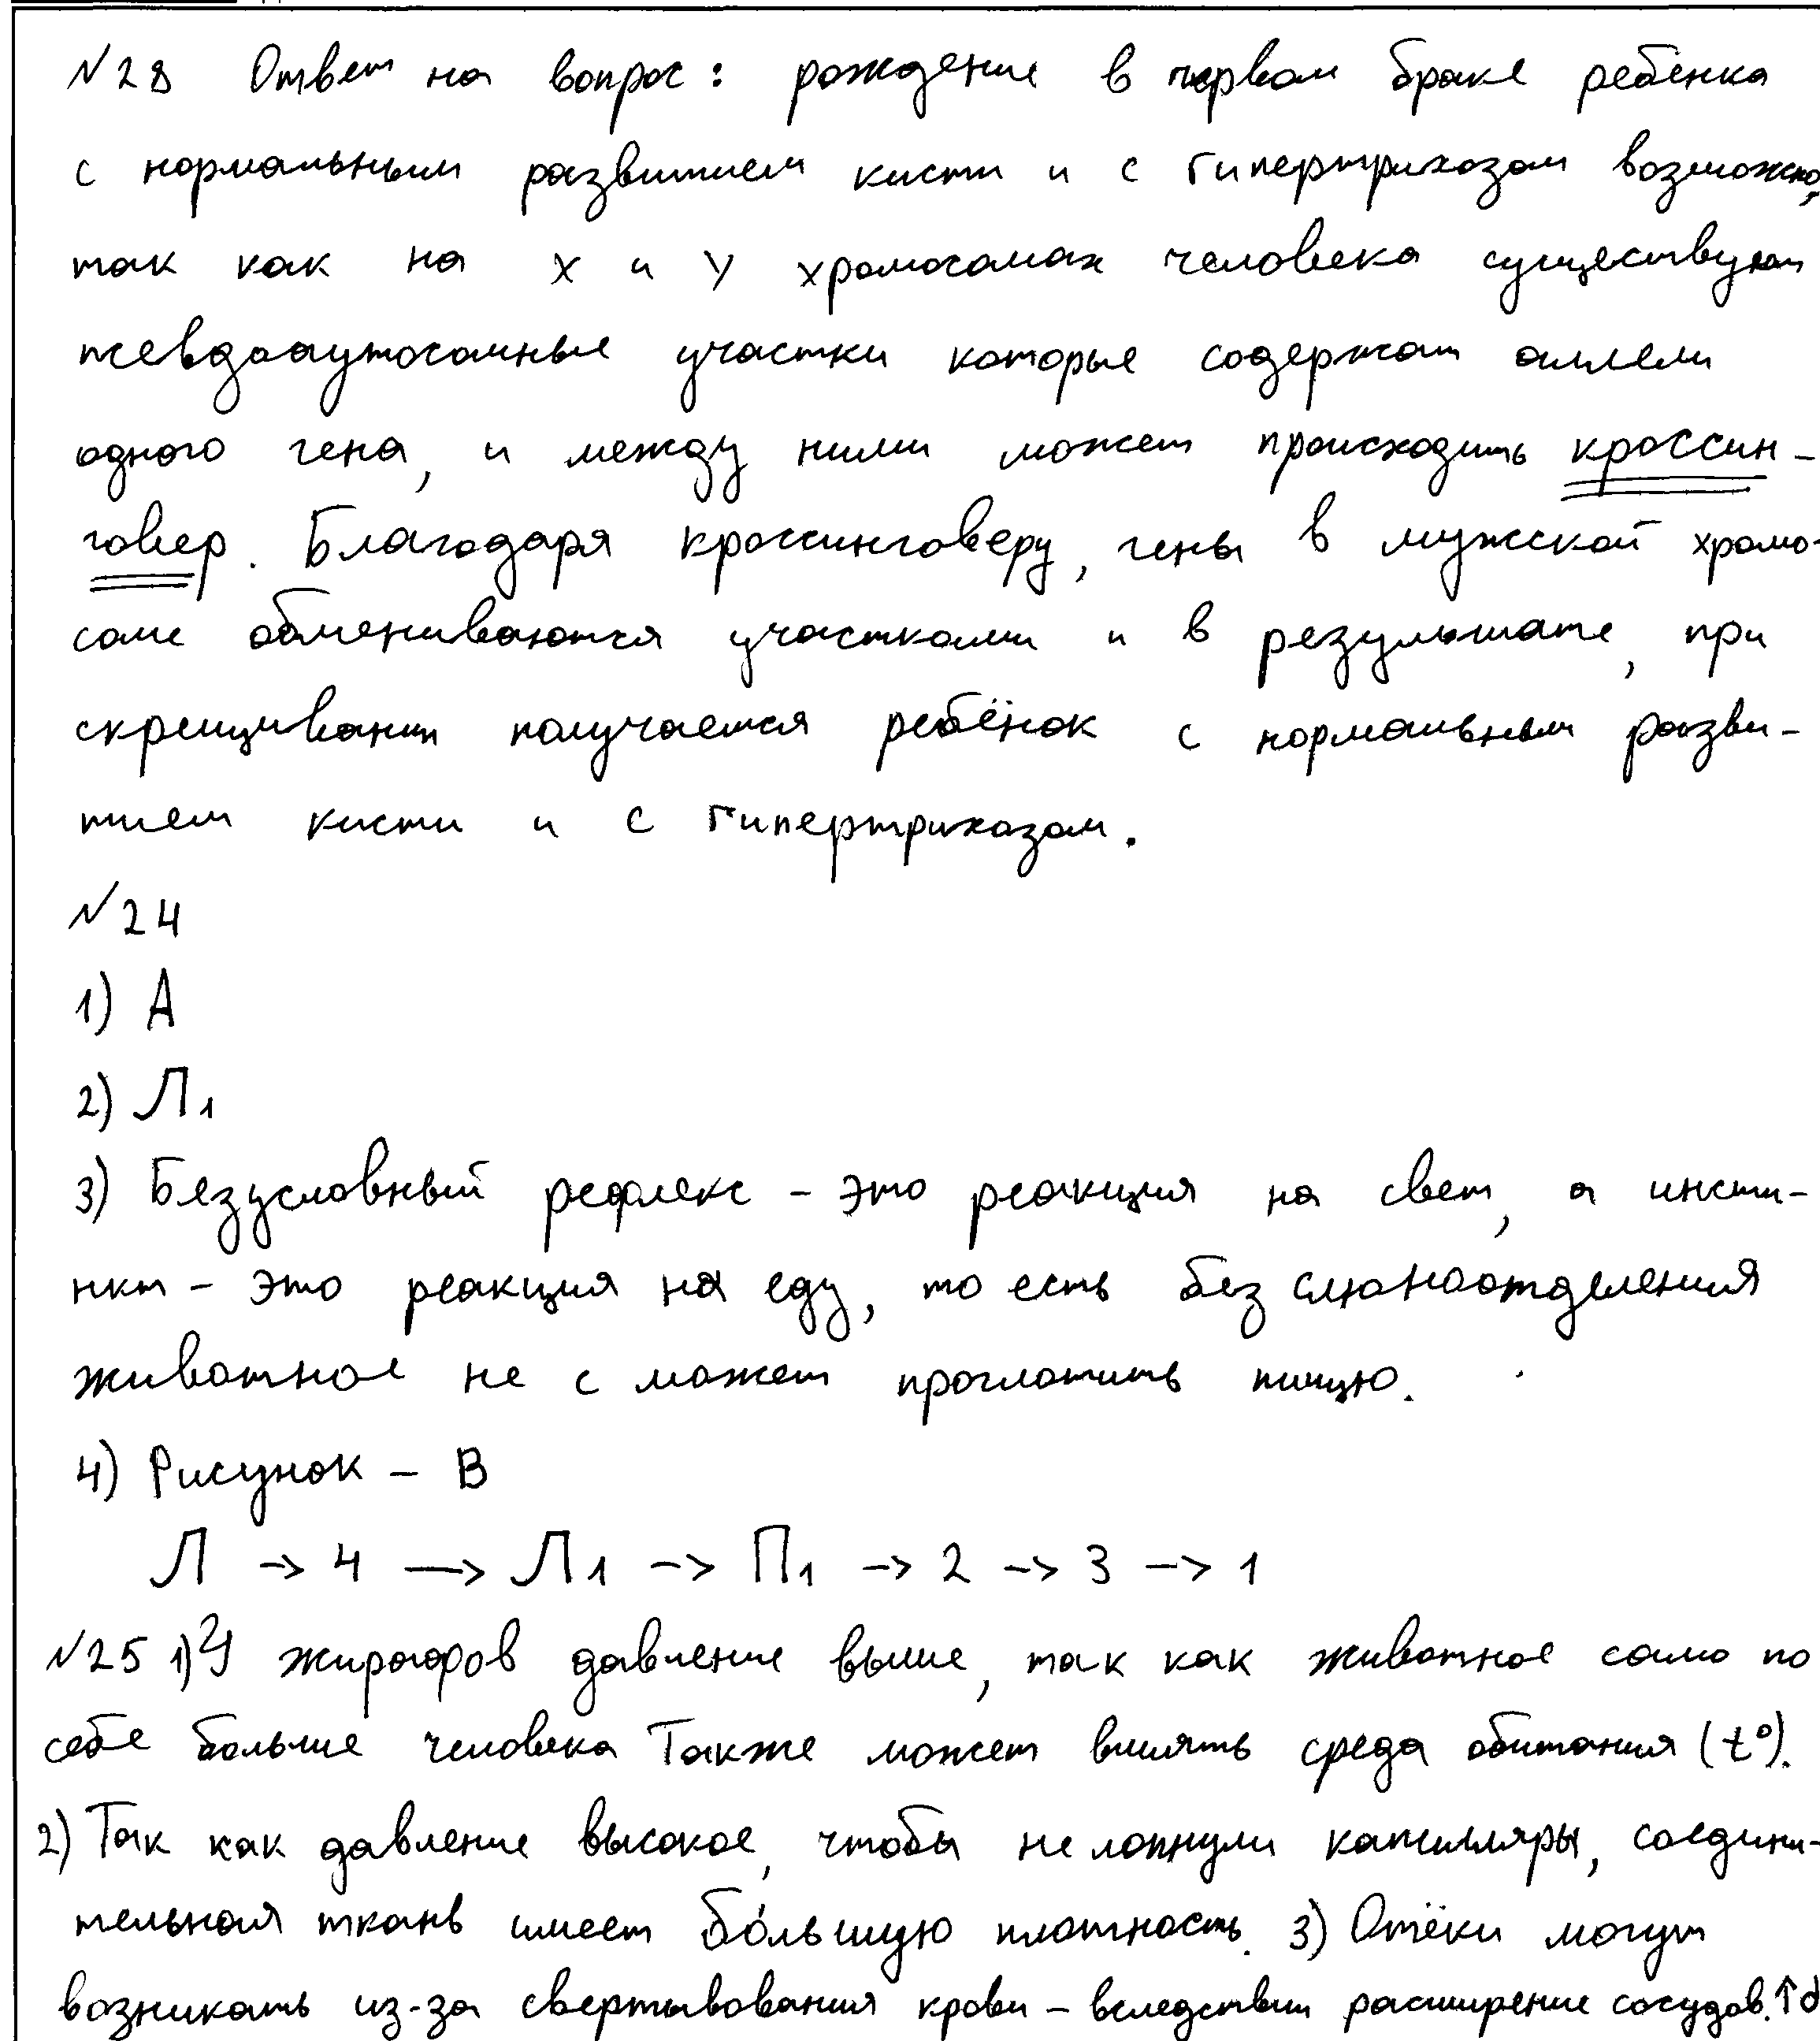 №28 Ответ на вопрос: рождение в первом браке ребенка
с нормальным развитием кисти и с гипертрихозом возможно,
так как на X и Y хромосомах человека существуют
псевдоаутосомные участки которые содержат аллели
одного гена, и между ними может происходить кроссин-
говер. Благодаря кроссинговеру, гены в мужской хромо-
соме обмениваются участками и в результате, при
скрещивании получается ребёнок с нормальным разви-
тием кисти и с гипертрихозом.
№24
1) А
2) Л1
3) Безусловный рефлекс - это реакция на свет, а инсти-
нкт - это реакция на еду, то есть без слюноотделения
животное не сможет проглотить пищю.
4) Рисунок - В
Л -> 4 -> Л1 -> П1 -> 2 -> 3 -> 1
№25 1) У жирафов давление выше, так как животное само по
себе больше человека Также может влиять среда обитания (t°).
2) Так как давление высокое, чтобы не лопнули капилляры, соедини-
тельная ткань имеет бо́льшую плотность. 3) Отёки могут
возникать из-за свертывования крови - вследствии расширение сосудов. ↑d